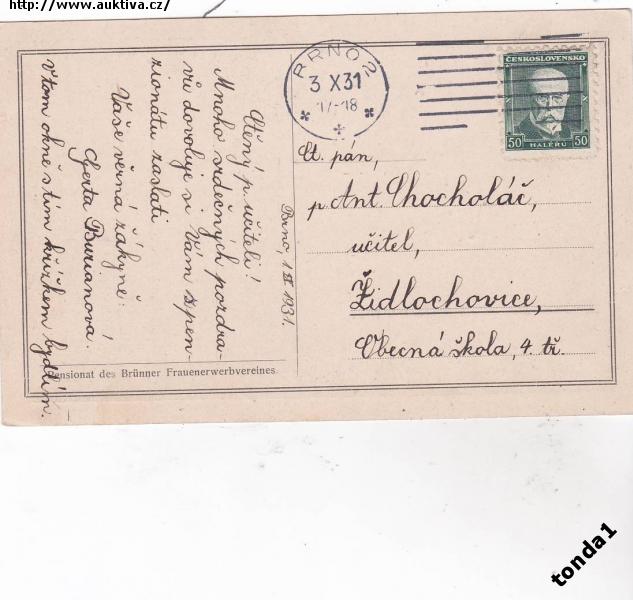 http://www.auktiva.cz/
BRNO 2
3 X 31
17-18
ČESKOSLOVENSKO
50 50
HALÉŘŮ
Brno, 1. 1931.
Ctěný p. učiteli!
Mnoho srdečných pozdra-
vů dovoluje si Vám z pen-
zionátu zaslati
Vaše věrná žákyně:
Gerta Burianová.
V tom okně s tím křížkem bydlím.
Ct. pán,
p. Ant. Chocholáč,
učitel,
Židlochovice,
Obecná škola, 4. tř.
Pensionat des Brünner Frauenerwerbvereines.
tonda1